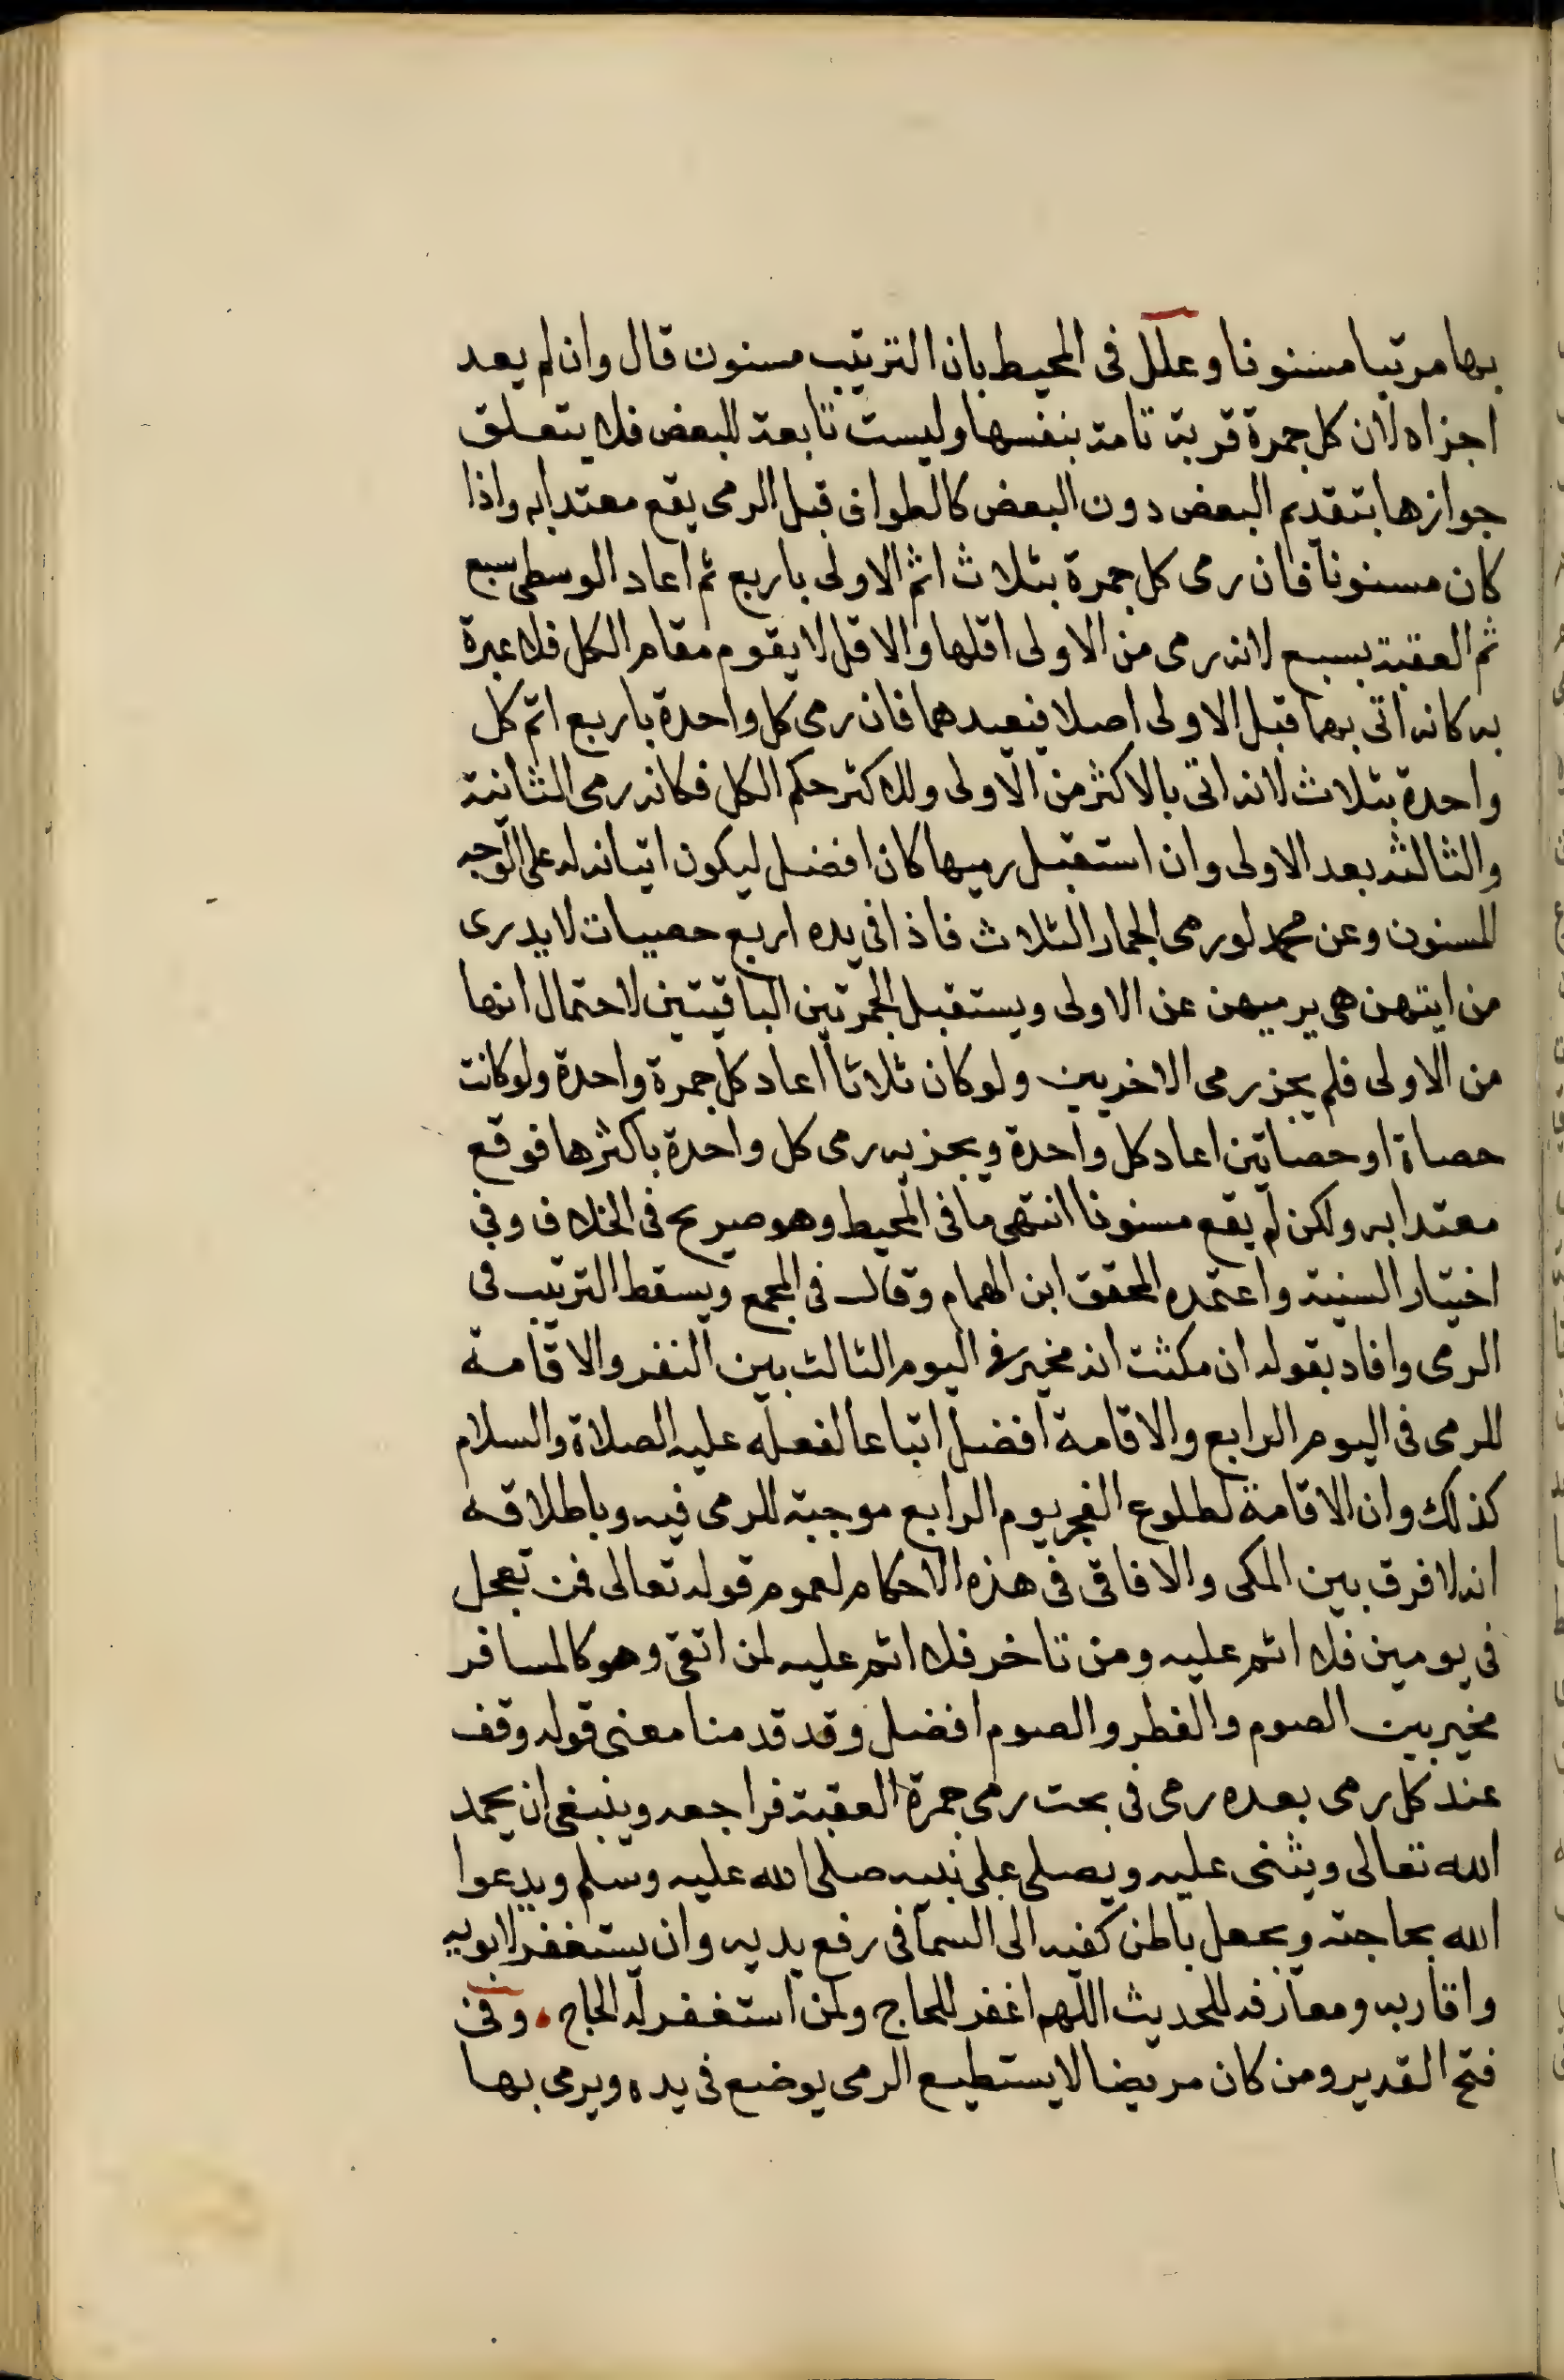 بها مرتبا مسنونا وعلل فى المحيط بان الترتيب مسنون قال وان لم يعد
اجزاه لان كل جمرة قربة تامة بنفسها وليست تابعة للبعض فلا يتعلق
جوازها بتقديم البعض دون البعض كالطواف قبل الرمى يقع معتدا به واذا
كان مسنونا فان رمى كل جمرة بثلاث اتم الاولى باربع ثم اعاد الوسطى بسبع
ثم العقبة بسبع لانه رمى من الاولى اقلها والاقل لا يقوم مقام الكل فلا عبرة
به كانه اتى بهما قبل الاولى اصلا فيعيدهما فان رمى كل واحدة باربع اتم كل
واحدة بثلاث لانه اتى بالاكثر من الاولى وللاكثر حكم الكل فكانه رمى الثانية
والثالثة بعد الاولى وان استقبل رميها كان افضل ليكون اتيانه له على الوجه
المسنون وعن محمد لو رمى الجمار الثلاث فاذا فى يده اربع حصيات لا يدرى
من ايتهن هى يرميهن عن الاولى ويستقبل الجمرتين الباقيتين لاحتمال انها
من الاولى فلم يجز رمى الاخريين ولو كان ثلاثا اعاد كل جمرة واحدة ولو كانت
حصاة او حصاتين اعاد كل واحدة ويجزيه رمى كل واحدة باكثرها فوقع
معتدا به ولكن لم يقع مسنونا انتهى ما فى المحيط وهو صريح فى الخلاف وفي
اختيار السنية واعتمده المحقق ابن الهمام وقال فى المجمع ويسقط الترتيب فى
الرمى وافاد بقوله ان مكثت انه مخير فى اليوم الثالث بين النفر والاقامة
للرمى فى اليوم الرابع والاقامة افضل اتباعا لفعله عليه الصلاة والسلام
كذلك وان الاقامة لطلوع الفجر يوم الرابع موجبة للرمى فيه وباطلاقه
انه لا فرق بين المكى والافاقى فى هذه الاحكام لعموم قوله تعالى فمن تعجل
فى يومين فلا اثم عليه ومن تاخر فلا اثم عليه لمن اتقى وهو كالمسافر
مخير بين الصوم والفطر والصوم افضل وقد قدمنا معنى قوله وقف
عند كل رمى بعده رمى فى بحث رمى جمرة العقبة فراجعه وينبغى ان يحمد
الله تعالى ويثنى عليه ويصلى على نبيه صلى الله عليه وسلم ويدعوا
الله بحاجته ويجعل باطن كفيه الى السما فى رفع يديه وان يستغفر لابويه
واقاربه ومعارفه للحديث اللهم اغفر للحاج ولمن استغفر له الحاج . وفى
فتح القدير ومن كان مريضا لا يستطيع الرمى يوضع فى يده ويرمى بها